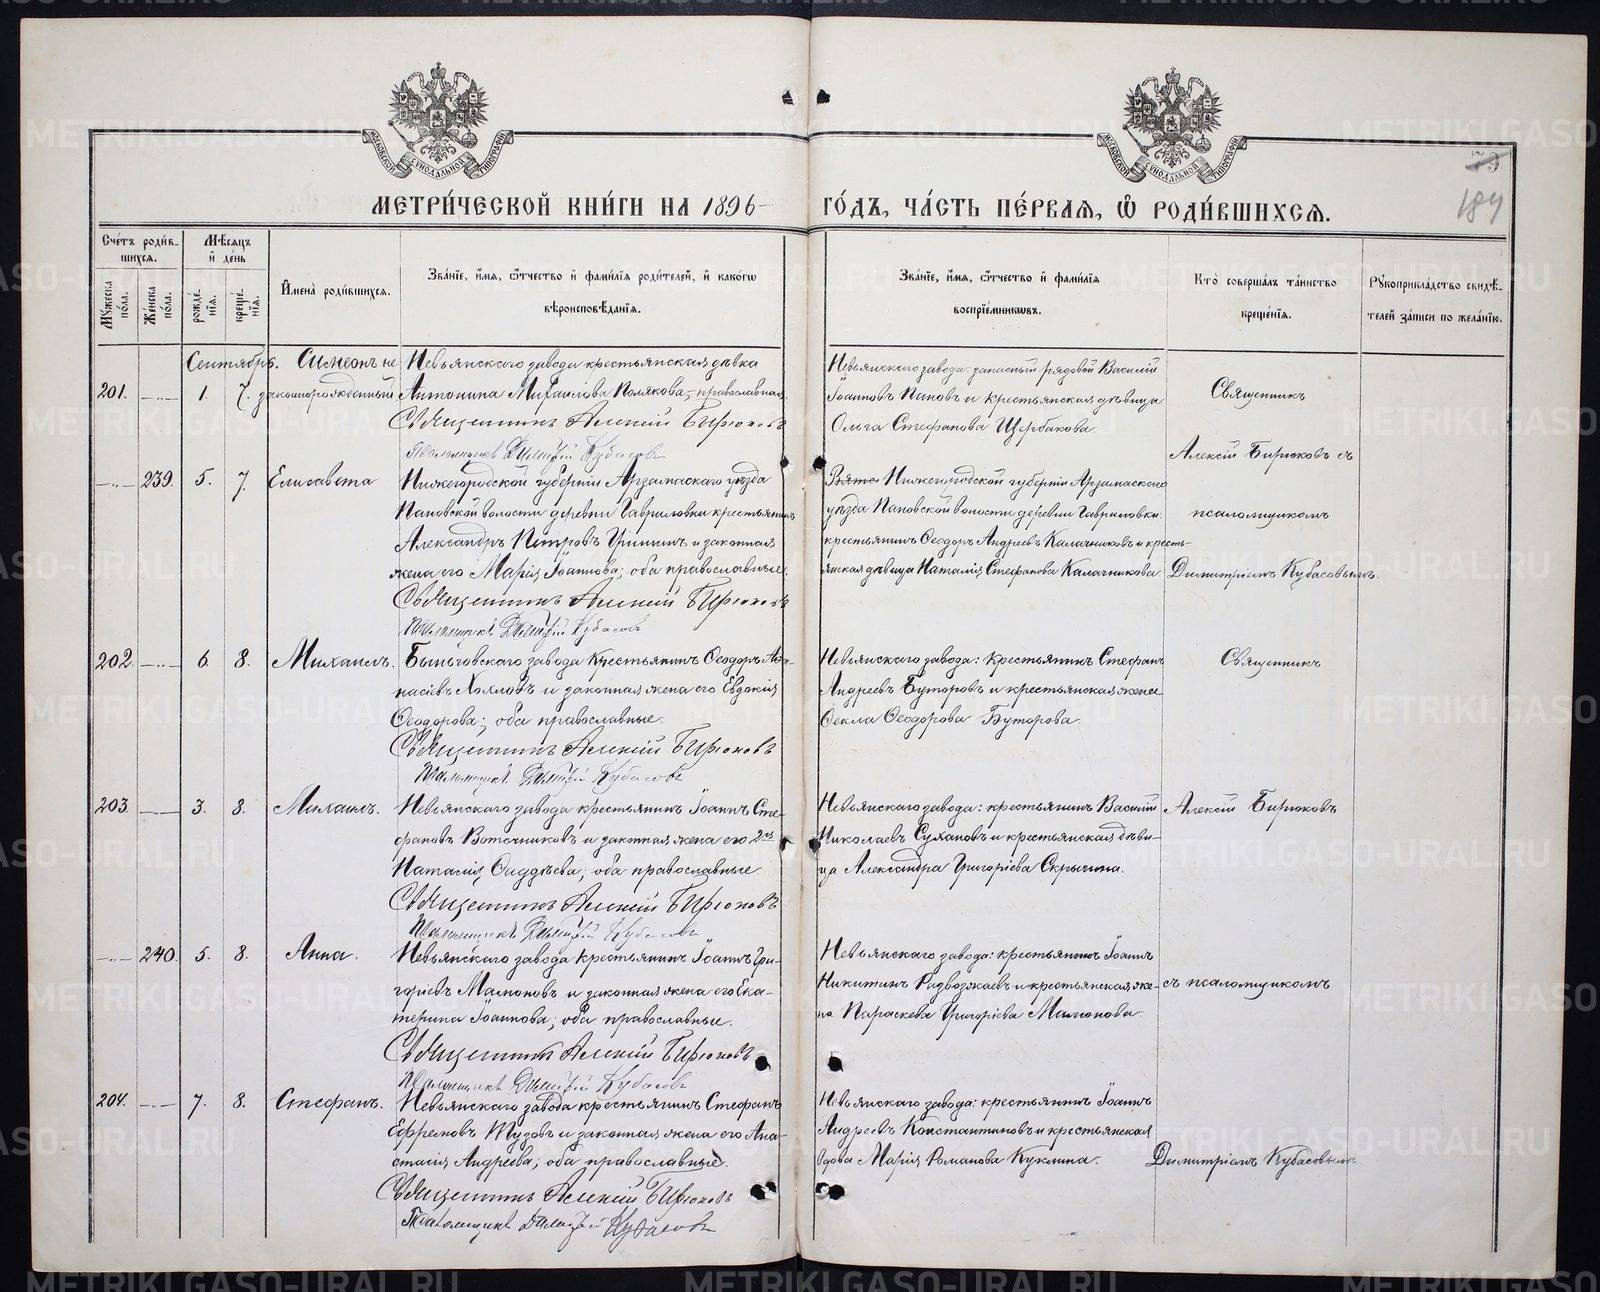 МЕТРИ́ЧЕСКОЙ КНИ́ГИ НА 1896
ГО́ДЪ, ЧА́СТЬ ПЕ́РВАЯ, Ѡ РОДИ́ВШИХСЯ.
189
Сче́тъ роди́в-
шихся.
Мꙋ́жеска по́ла.
Же́нска по́ла.
Мѣ́сяцъ и де́нь
рожде́-нїя.
креще́-нїя.
Имена̀ роди́вшихся.
Зва́нїе, и́мя, ѻ҆́тчество и фами́лїя роди́телей, и како́гѡ
вѣроисповѣ́данїя.
Зва́нїе, и́мя, ѻ҆́тчество и фами́лїя
воспрїе́мникѡвъ.
Кто̀ соверша́лъ та́инство
креще́нїя.
Рꙋкоприкла́дство свидѣ́-
телей за́писи по жела́нїю.
Сентябрь. Симеонъ не- Невьянскаго завода крестьянская дѣвка
201. 1. 7. законнорожденный Антонина Михаилова Полякова, православная.
Священникъ Алексій Бирюковъ
Псаломщикъ Димитрій Кубасовъ
Невьянскаго завода: запасный рядовой Василій
Іоанновъ Пановъ и крестьянская дѣвица
Ольга Стефанова Щербакова.
Священникъ
Алексій Бирюковъ съ
239. 5. 7. Елисавета Нижегородской губерніи Арзамаскаго уѣзда
Пановской волости деревни Гавриловки крестьянинъ
Александръ Петровъ Гришинъ и законная
жена его Марія Іоаннова; оба православные.
Священникъ Алексій Бирюковъ
Псаломщикъ Димитрій Кубасовъ
Нижегородской губерніи Арзамаскаго
уѣзда Пановской волости деревни Гавриловки:
крестьянинъ Ѳеодоръ Андреевъ Калачниковъ и кресть-
янская дѣвица Наталія Стефанова Калачникова.
псаломщикомъ
Димитріемъ Кубасовымъ.
202. 6. 8. Михаилъ. Быньговскаго завода крестьянинъ Ѳеодоръ Аѳа-
насіевъ Хохловъ и законная жена его Евдокія
Ѳеодорова; оба православные.
Священникъ Алексій Бирюковъ
Псаломщикъ Димитрій Кубасовъ
Невьянскаго завода: крестьянинъ Стефанъ
Андреевъ Буторовъ и крестьянская жена
Ѳекла Ѳеодорова Буторова.
Священникъ
203. 3. 8. Михаилъ. Невьянскаго завода крестьянинъ Іоаннъ Сте-
фановъ и законная жена его
Наталія оба православные.
Священникъ Алексій Бирюковъ
Псаломщикъ Димитрій Кубасовъ
Невьянскаго завода: крестьянинъ Василій
Николаевъ Сухановъ и крестьянская дѣви-
ца Александра Григоріева
Алексій Бирюковъ
240. 5. 8. Анна. Невьянскаго завода крестьянинъ Іоаннъ Гри-
горіевъ Мамоновъ и законная жена его Ека-
терина Іоаннова; оба православные.
Священникъ Алексій Бирюковъ
Псаломщикъ Димитрій Кубасовъ
Невьянскаго завода: крестьянинъ Іоаннъ
Никитинъ и крестьянская же-
на Параскева Григоріева Мамонова.
съ псаломщикомъ
204. 7. 8. Стефанъ. Невьянскаго завода крестьянинъ Стефанъ
Ефремовъ Тузовъ и законная жена его Ана-
стасія Андреева; оба православные.
Священникъ Алексій Бирюковъ
Псаломщикъ Димитрій Кубасовъ
Невьянскаго завода: крестьянинъ Іоаннъ
Андреевъ Константиновъ и крестьянская
вдова Марія Романова Куклина.
Димитріемъ Кубасовымъ
METRIKI.GASO-URAL.RU